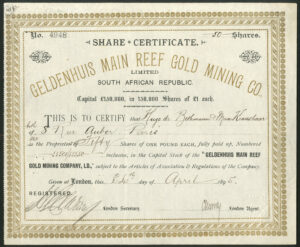 No. 4948
50 Shares.
SHARE CERTIFICATE.
GELDENHUIS MAIN REEF GOLD MINING CO.
LIMITED
SOUTH AFRICAN REPUBLIC.
Capital £150,000, in 150,000 Shares of £1 each.
THIS IS TO CERTIFY that
of 5 Rue Auber Paris
is the Proprietor of Fifty Shares of ONE POUND EACH, fully paid up, Numbered
inclusive, in the Capital Stock of the "GELDENHUIS MAIN REEF
GOLD MINING COMPANY, LD., subject to the Articles of Association & Regulations of the Company.
London, this day of April 1895.
REGISTERED
London Secretary.
London Agent.